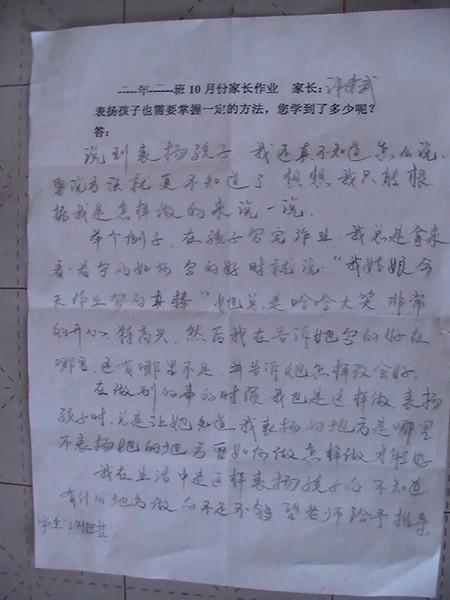 二年二班10月份家长作业 家长:许建武
表扬孩子也需要掌握一定的方法，您学到了多少呢？
答：
说到表扬孩子 我还真不知道怎么说、
要说方法就更不知道了 想想我只能根
据我是怎样做的来说一说、
举个例子、在孩子写完作业 我总是拿来
看一看写的如何 写的好时就说:“我姑娘今
天作业写的真棒”她总是哈哈大笑 非常
的开心 特高兴、然后我在告诉她写的好在
哪里、还有哪里不足、并告诉她怎样改会好.
在做别的事的时候 我也是这样做 表扬
孩子时、总是让她知道 我表扬的地方是哪里
不表扬她的地方要如何做 怎样做才能好
我在生活中是这样表扬孩子的 不知道
有什么地方做的不足不够 望老师给予指导
学生